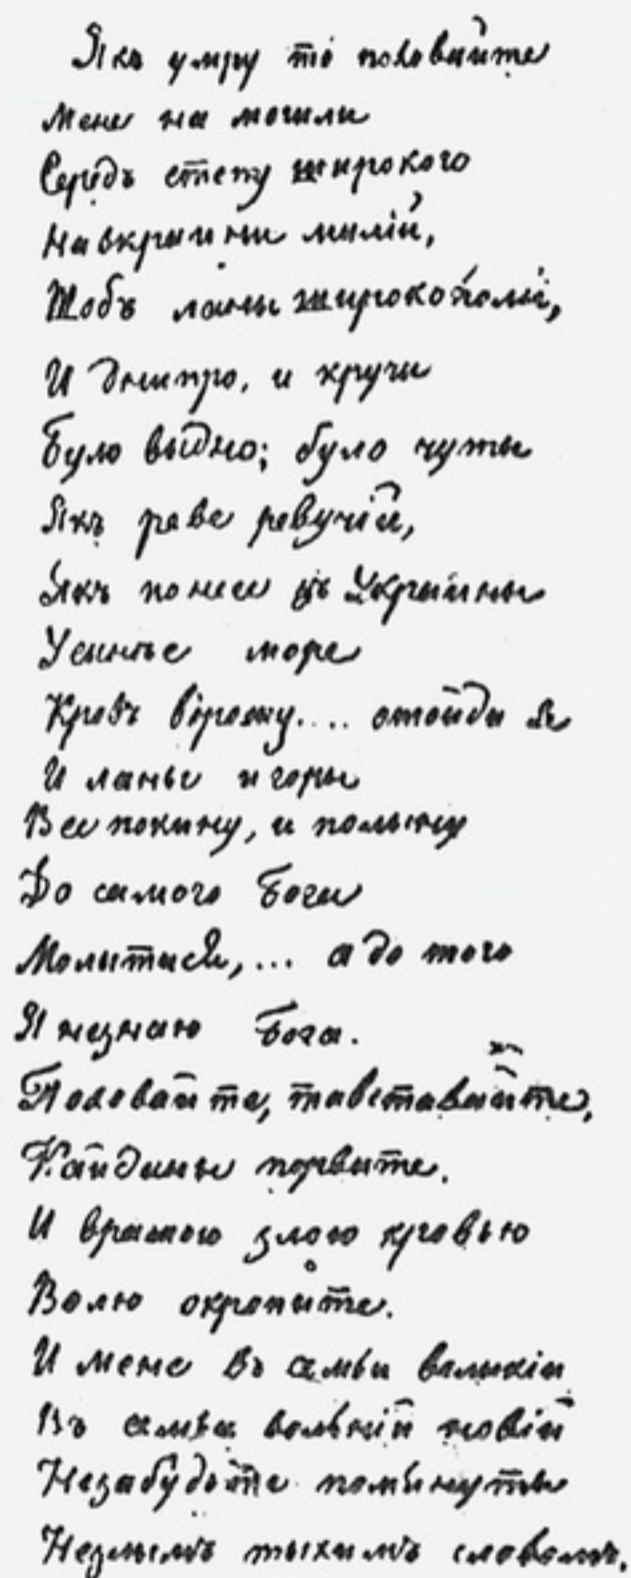 Якъ умру то поховайте
Мене на могили
Середъ степу широкого
На вкраини милій,
Щобъ ланы широкополи,
И днипро, и кручи
Було выдно; було чуты
Якъ реве ревучій,
Якъ понесе зъ Украины
У синѣе море
Кровъ ворожу.... отойди я
И ланы и горы
Все покину, и полыну
До самого Бога
Молитися,... а до того
Я незнаю Бога.
Поховайте, та вставайте,
Кайданы порвите.
И вражою злою кровью
Волю окропите.
И мене въ семьи великій
Въ семьи вольній новій
Незабудьте помянуты
Незлымъ тыхимъ словомъ.